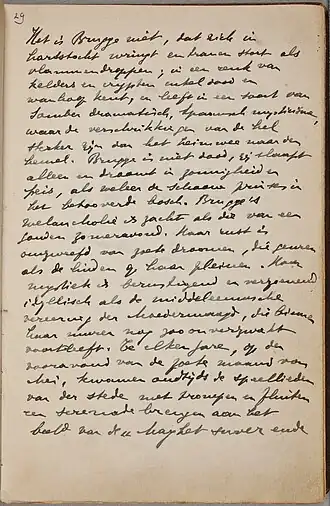 29
Het is Brugge niet, dat zich in
hartstocht wringt en tranen stort als
vlammendroppen; in een reuk van
kelders en crypten enkel dood en
wanhoop kent, en leeft in een soort van
somber dramatisch, spaansch mysticisme,
waar de verschrikkingen van de hel
sterker zijn dan het heimwee naar den
hemel. Brugge is niet dood, zij slaapt
alleen en droomt in innigheid en
peis, als weleer de schoone prinses in
het betooverde bosch. Brugge's
melancholie is zacht als die van een
gouden zomeravond. Haar rust is
omgeven van zoete droomen, die geuren
als de linden op haar pleinen. Haar
mystiek is berustigend en vergemoend
idyllisch als de middeleeuwsche
vereering der Moedermaagd, die binnen
haar muren nog zoo onverzwakt
voortleeft. Te elken jare, op den
vooravond van de zoete maand van
Mei, kwamen oudtijds de speellieden
van der stede met trompen en fluiten
een serenade brengen aan het
beeld van de "Maghet